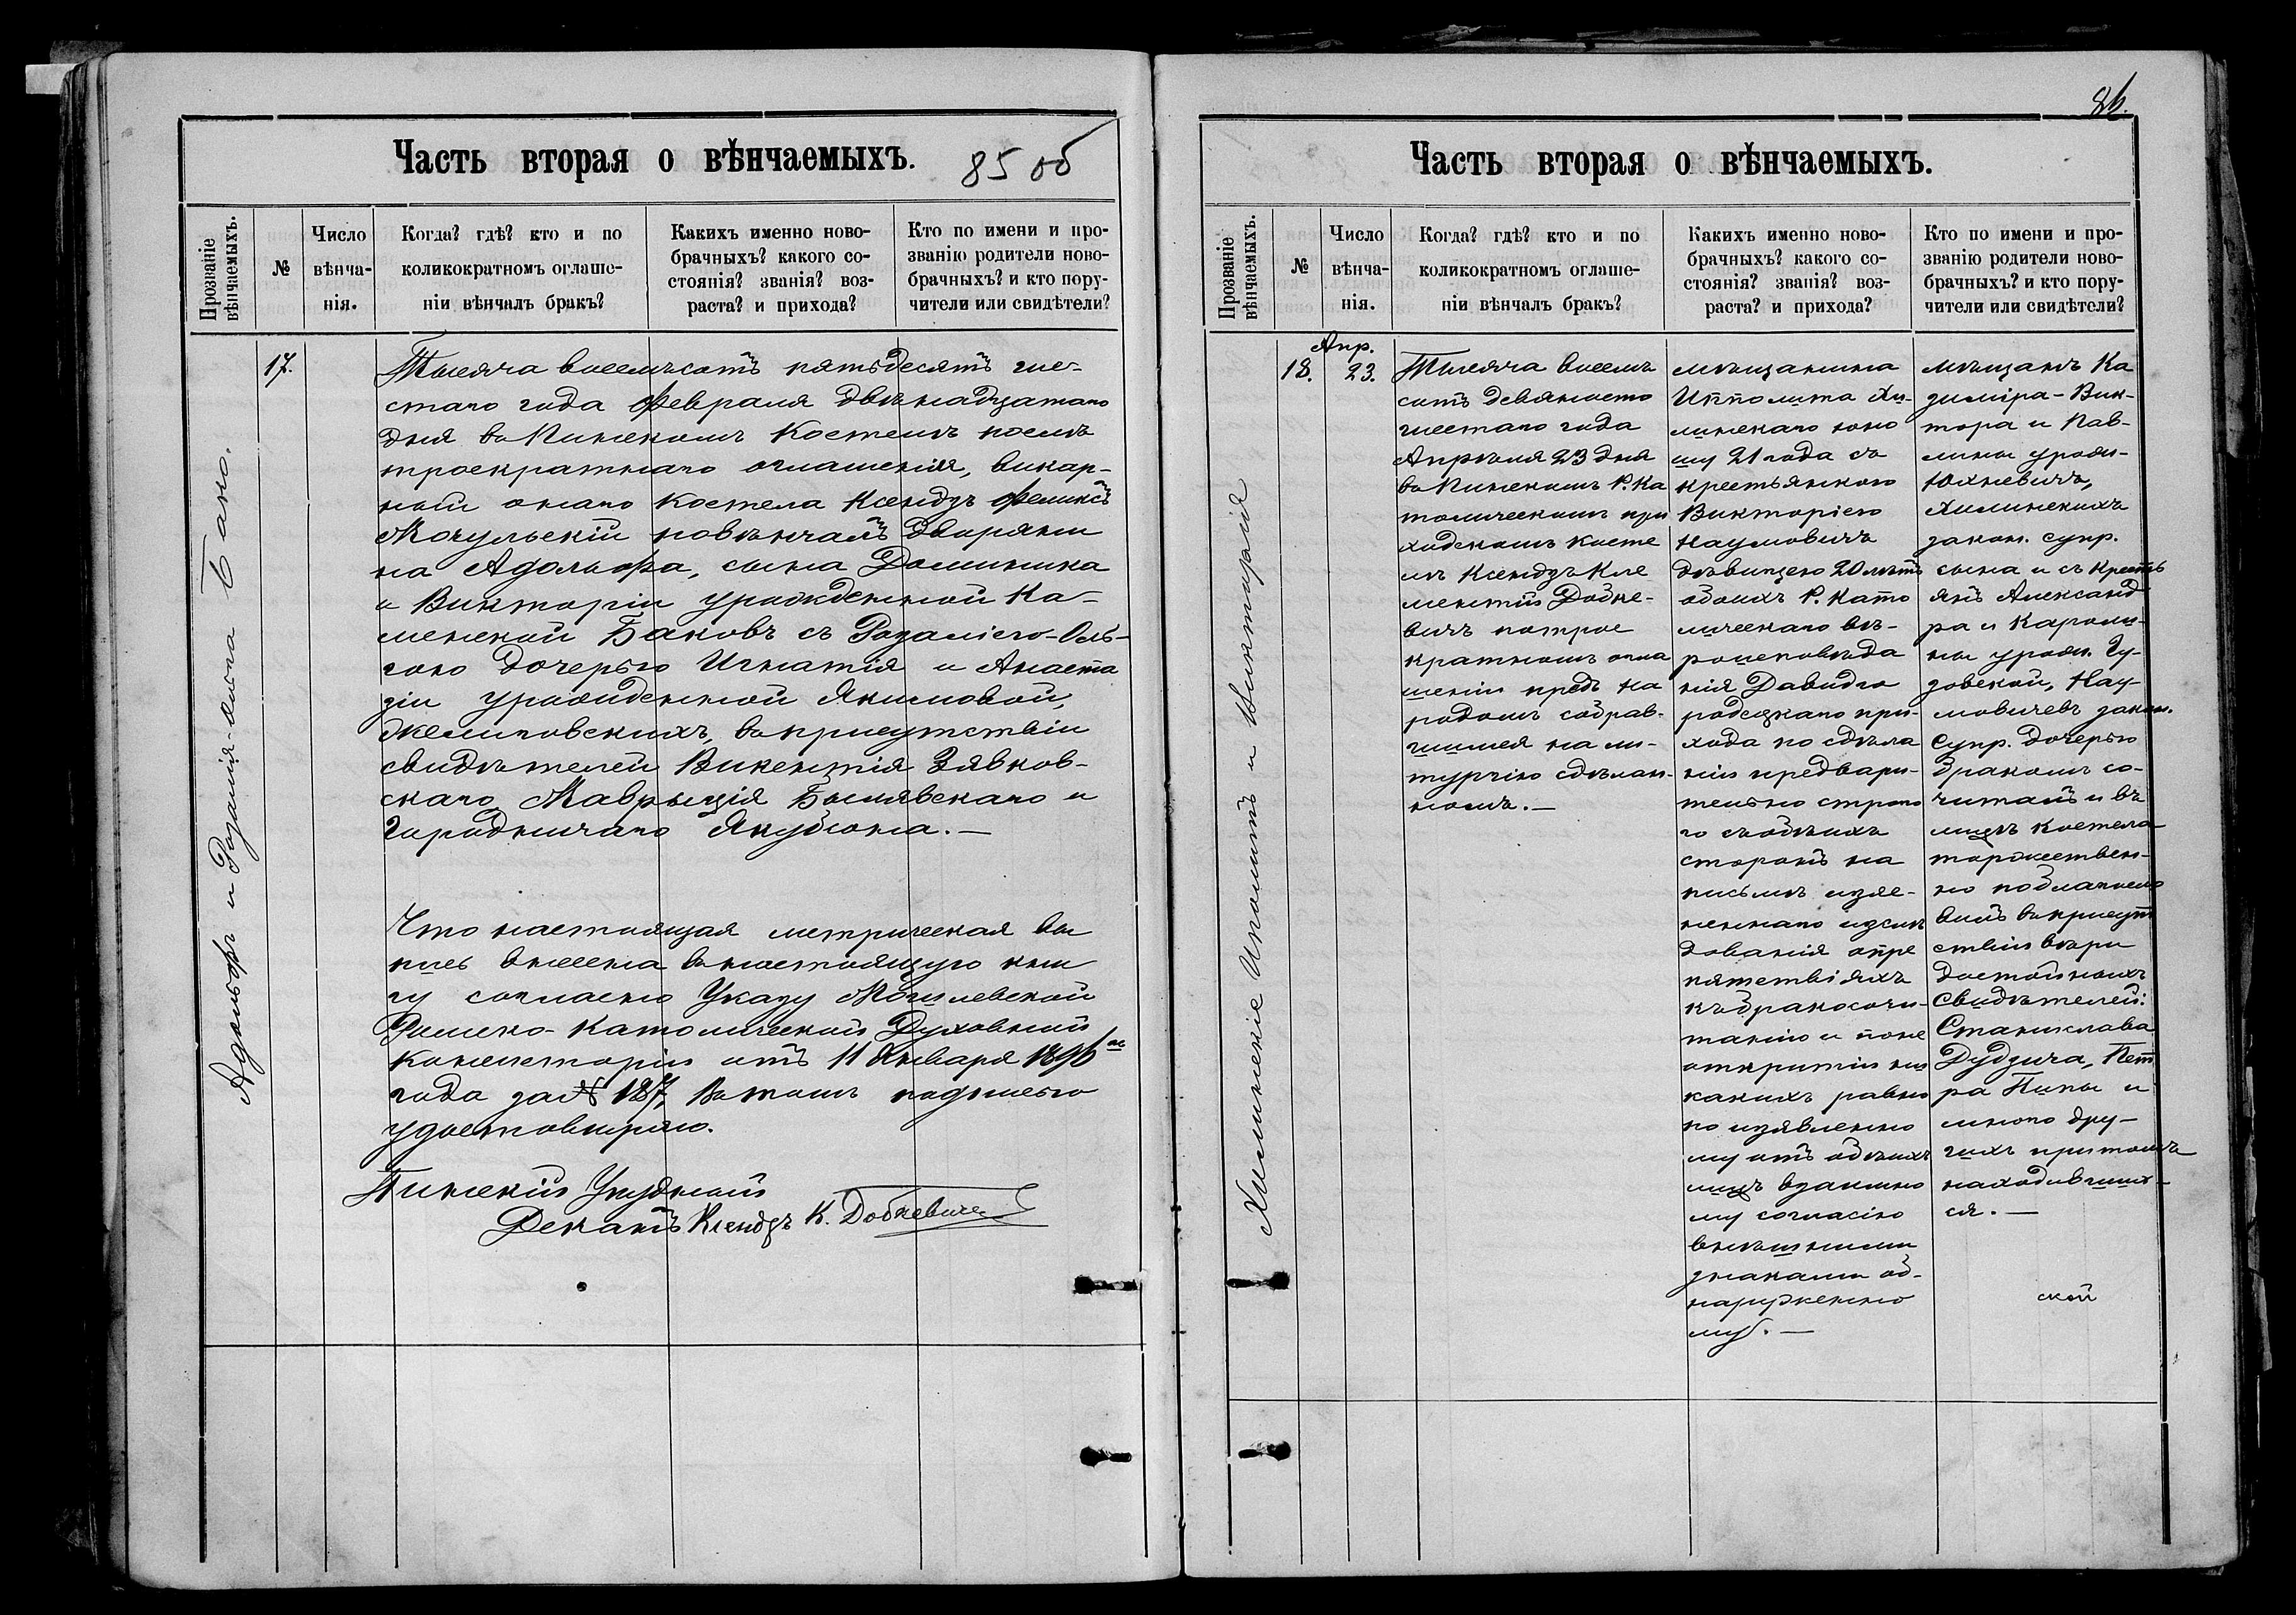 Часть вторая о вѣнчаемыхъ. 85 об
Прозваніе
вѣнчаемыхъ.
№
Число
вѣнча-
нія.
Когда? гдѣ? кто и по
коликократномъ оглаше-
ніи вѣнчалъ бракъ?
Какихъ именно ново-
брачныхъ? какого со-
стоянія? званія? воз-
раста? и прихода?
Кто по имени и про-
званію родители ново-
брачныхъ? и кто пору-
чители или свидѣтели?
Адольфъ и Розалія-Ольга Бако.
17.
Тысяча восемьсотъ пятьдесятъ ше-
стаго года Февраля двѣнадцатаго
дня въ Пинскомъ Костелѣ послѣ
троекратнаго оглашенія, викар-
ный онаго костела Ксендзъ Феликсъ
Мочульскій повѣнчалъ Дворяни
на Адольфа, сына Доминика
и Викторіи урожденной Ка-
менской Баковъ съ Розаліею-Оль-
гою дочерью Игнатія и Анаста
зіи урожденной Якимовой,
Желиговскихъ, въ присутствіи
свидѣтелей Викентія Зявков-
скаго, Маврыція Былявскаго и
Городничаго Якубсона. —
Что настоящая метрическая вы
пись внесена въ настоящую кни
гу согласно Указу Могилевской
Римско-Католической Духовной
Консисторіи отъ 11 Января 1896 го
года за № 187, въ томъ подписью
удостовѣряю.
Пинскій Уѣздный
Деканъ Ксендзъ К. Добкевичъ
86.
Часть вторая о вѣнчаемыхъ.
Прозваніе
вѣнчаемыхъ.
№
Число
вѣнча-
нія.
Когда? гдѣ? кто и по
коликократномъ оглаше-
ніи вѣнчалъ бракъ?
Какихъ именно ново-
брачныхъ? какого со-
стоянія? званія? воз-
раста? и прихода?
Кто по имени и про-
званію родители ново-
брачныхъ? и кто пору-
чители или свидѣтели?
Хилинскіе Иполитъ и Викторія
18.
Апр.
23.
Тысяча восемь
сотъ девяносто
шестаго года
Апрѣля 23 дня
въ Пинскомъ Р. Ка
толическомъ при
ходскомъ косте
лѣ Ксендзъ Кле
ментій Добке-
вичъ по трое
кратномъ огла
шеніи предъ на
родомъ собрав-
шимся на ли-
тургію сдѣлан-
номъ. —
мѣщанина
Ипполита Хи-
линскаго юно
шу 21 года съ
крестьянкою
Викторіею
Наумовичъ
дѣвицею 20 лѣтъ
обоихъ Р. Като
лическаго вѣ-
роисповѣда
нія Давидго
родецкаго при-
хода по сдѣла
ніи предвари-
тельно строго
го съ обѣихъ
сторонъ на
письмѣ изяс-
неннаго изслѣ
дованія о пре
пятствіяхъ
къ бракосочи-
танію и по не
открытіи ни
какихъ равно
по изявленно
му отъ обѣихъ
лицъ взаимно
му согласію
внѣшними
знаками об-
наруженно
му. —
мѣщанъ Ка
зиміра-Вик-
тора и Пав-
лины урожд-
Юхневичъ,
Хилинскихъ
закон. супр.
сына и съ крестъ
янъ Александ
ра и Кароли-
ны урожд. Гу-
довской, Нау-
мовичевъ закон.
Супр. дочерью
бракомъ со-
читалъ и въ
лицѣ костела
торжествен-
но поблагосло
вилъ въ присут
ствіи вѣри
достойныхъ
свидѣтелей:
Станислава
Дудзича, Пет
ра Кипы и
много дру-
гихъ при томъ
находивших-
ся. —
ской